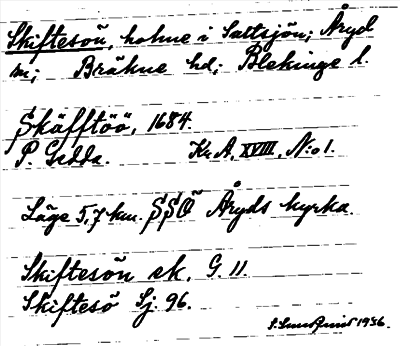 Skiftesön, holme i Saltsjön; Åryd
sn; Bräkne hd; Blekinge l.
Skäfftöö, 1684.
P. Gedda. Kr. A, XVIII, N:o 1.
Läge 5,7 km. SSO Åryds kyrka.
Skiftesön ek. G. 11
Skiftesö Sj. 96.
1936.